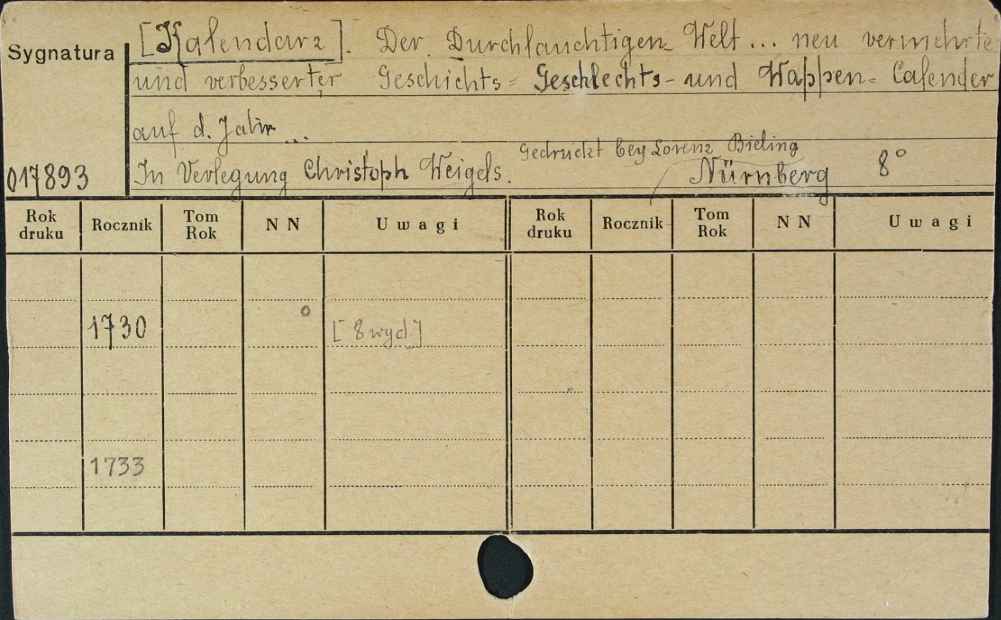 Sygnatura
[Kalendarz]. Der Durchlauchtigen Welt ... neu vermehrte
und verbesserter Geschichts- Geschlechts- und Wappen- Calender
auf d. Jahr ...
Gedruckt bey Lorenz Bieling
017893 In Verlegung Christoph Weigels. Nürnberg 8°
Rok druku Rocznik Tom Rok N N Uwagi Rok druku Rocznik Tom Rok N N Uwagi
1730 [8 wyd]
1733